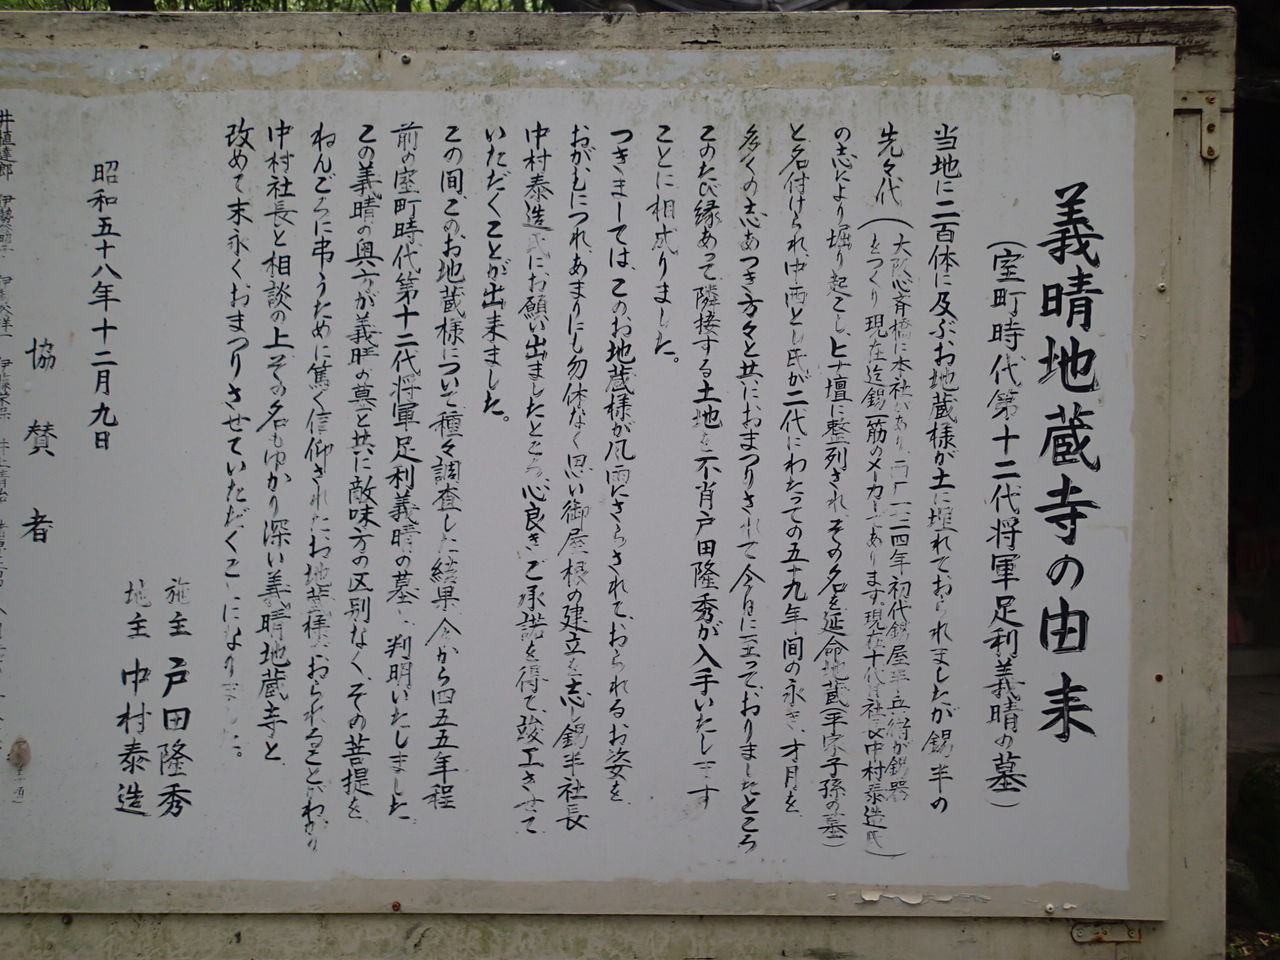 義晴地蔵寺の由来
(室町時代第十二代将軍足利義晴の墓)
当地に二百体に及ぶお地蔵様が土に埋れておられましたが錫半の
先々代
(大阪心斉橋に本社があり、一七一四年初代錫屋半兵衛が錫器
をつくり現在迄錫一筋のメーカーであります。現在十代目社長中村泰造氏)
の志により堀り起こし、ヒナ壇に整列され、その名を延命地蔵(平家子孫の墓)
と名付けられ、中西とし氏が二代にわたっての五十九年間の永き、才月を、
多くの志あつき方々と共におまつりされて今日に至っておりましたところ
このたび縁あって隣接する土地を不肖戸田隆秀が入手いたします
ことに相成りました。
つきましては、このお地蔵様が風雨にさらされて、おられるお姿を、
おがむにつれ、あまりにも勿体なく思い御屋根の建立を志し錫半社長
中村泰造氏にお願い出ましたところ、心良きご承諾を得て、竣工させて
いただくことが出来ました。
この間、このお地蔵様について種々調査した結果、今から四五五年程
前の室町時代第十二代将軍足利義晴の墓と判明いたしました
この義晴の奥方が義晴の墓と共に敵味方の区別なく、その菩提を
ねんごろに弔うために篤く信仰されたお地蔵様でおられることがわかり
中村社長と相談の上その名もゆかり深い義晴地蔵寺と
改めて末永くおまつりさせていただくことになりました。
昭和五十八年十二月九日
施主 戸田隆秀
地主 中村泰造
協賛者